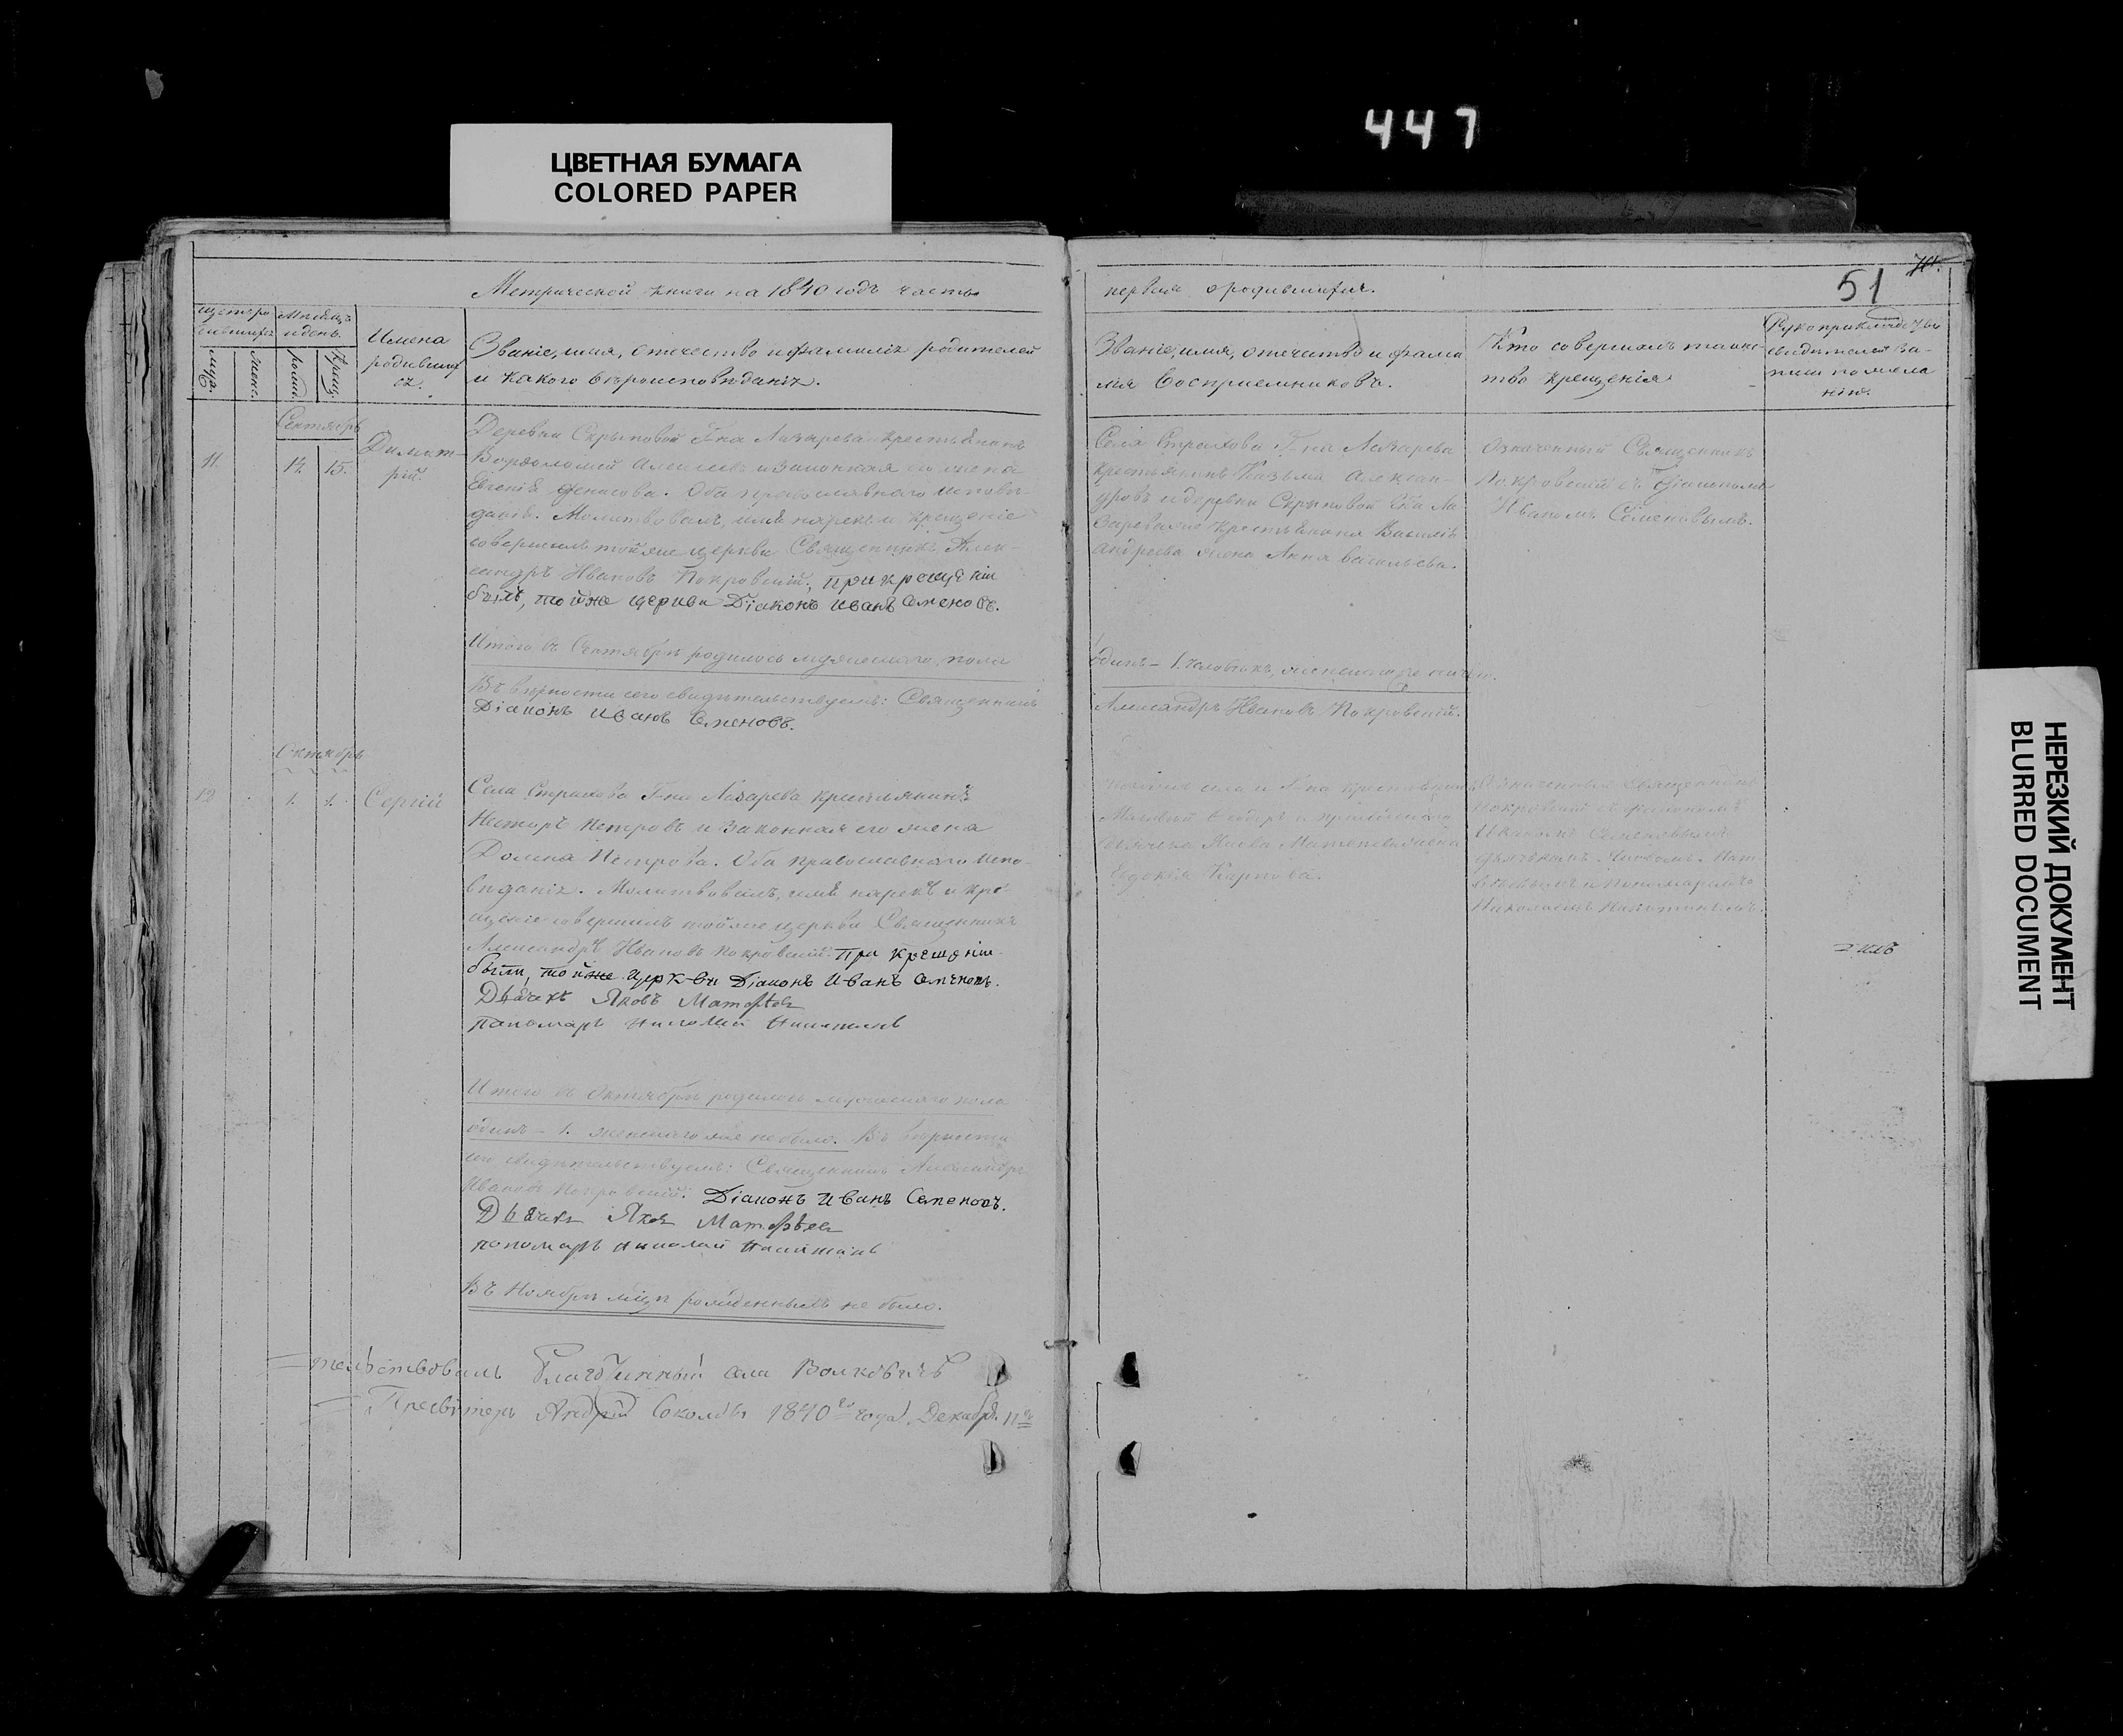 447
ЦВЕТНАЯ БУМАГА
COLORED PAPER
51
Метрической книги на 1840 годъ часть
первая о родившихся.
Мѣсяцъ и день.
муж.
женс.
рожд.
крещ.
Имена родившихся.
Званіе, имя, отечество и фамилія родителей
и какого вѣроисповѣданія.
Званіе, имя, отечество и фами
лія Воспріемниковъ.
Кто совершалъ таинс-
тво крещенія
Рукоприкладство
свидѣтелей за-
писи по жела
нію.
Сентябрь
11.
14.
15.
Димит-
рій.
Деревни Скрыповой Г-на Лазарева крестьянинъ
Варѳоломей Алексѣевъ и законная его жена
Евгенія Оба православнаго исповѣ-
данія. Молитвовалъ, имя нарекъ и крещеніе
совершилъ тойже церкви Священникъ Алек-
сандръ Ивановъ Покровскій; при крещеніи
былъ, тойже церкви Діаконъ Иванъ Семеновъ.
Села Страхова Г-на Лазарева
крестьянинъ Козьма Алексан-
дровъ и деревни Скрыповой Г-на Ла
зарева же крестьянина Василія
Андреева жена Анна Васильева.
Означенный Священникъ
Покровскій съ Діакономъ
Иваномъ Семеновымъ.
Итого въ Сентябрѣ родилось мужескаго пола
одинъ - 1. человѣкъ, женскаго
Въ вѣрности сего свидѣтельствуемъ: Священникъ
Александръ Ивановъ Покровскій.
Діаконъ Иванъ Семеновъ.
Октябрь
12
1.
1.
Сергій
Села Страхова Г-на Лазарева крестьянинъ
Несторъ Петровъ и законная его жена
Домна Петрова. Оба православнаго испо-
вѣданія. Молитвовалъ, имя нарекъ и кре-
щеніе совершилъ тойже церкви Священникъ
Александръ Ивановъ Покровскій. При крещеніи
были, тойже церкви Діаконъ Иванъ Семеновъ.
Дьячекъ Яковъ Матфѣевъ
пономарь Николай Никитинъ
тогоже села и Г-на крестьянинъ
Евдокія Карпова.
Означенный Священникъ
Покровскій съ Діакономъ
Иваномъ Семеновымъ
дьячкомъ Яковомъ Мат-
фѣевымъ и Пономаремъ
Николаемъ Никитинымъ.
Итого въ Октябрѣ родилось мужескаго пола
одинъ - 1. женскаго же не было. Въ вѣрности
сего свидѣтельствуемъ: Священникъ Александръ
Ивановъ Покровскій. Діаконъ Иванъ Семеновъ.
Дьячекъ Яковъ Матфѣевъ
пономарь Николай Никитинъ
Въ Ноябрѣ мѣсяцѣ рожденныхъ не было.
Благочинный села Волковичъ
Пресвитеръ Андрей Соколовъ 1840го года Декабря 11го
НЕРЕЗКИЙ ДОКУМЕНТ
BLURRED DOCUMENT